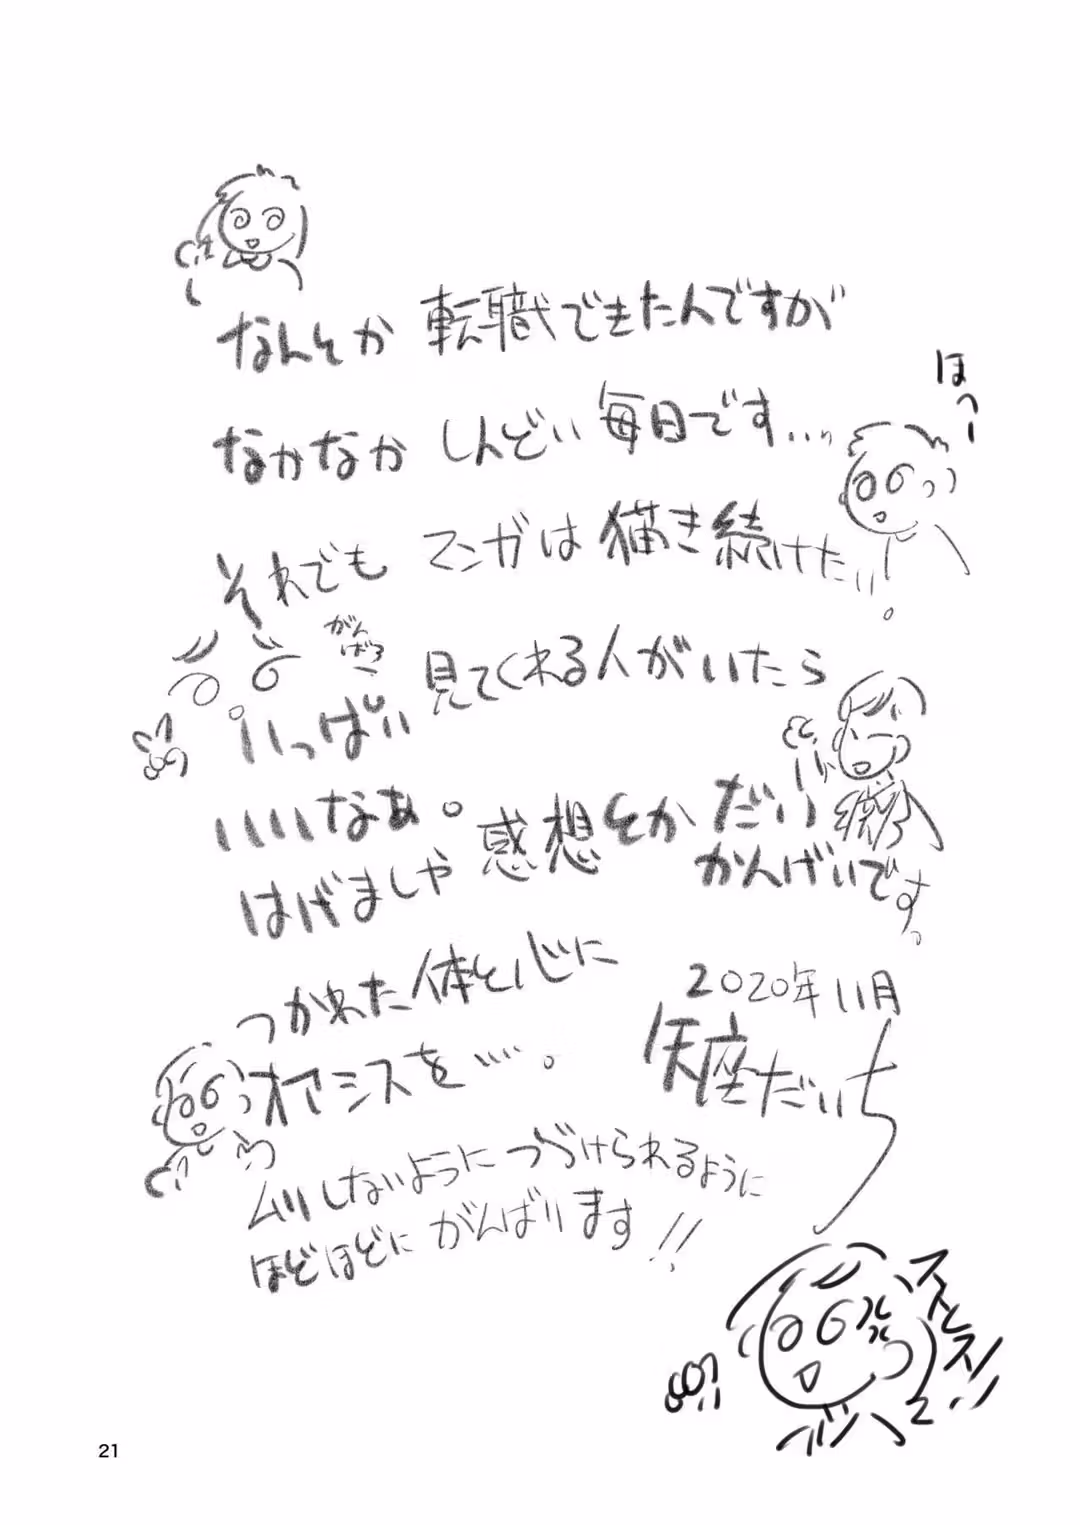 なんとか 転職できたんですが
なかなか しんどい 毎日です…
ほっー
それでも マンガは 描き続けたい
がん
ばろー
いっぱい 見てくれる人がいたら
いいなぁ。
はげましや 感想とか だい
かんげいです。
つかれた 体と心に
オアシスを…。
2020年11月
矢座だいち
ムリしないように つづけられるように
ほどほどに がんばります!!
21